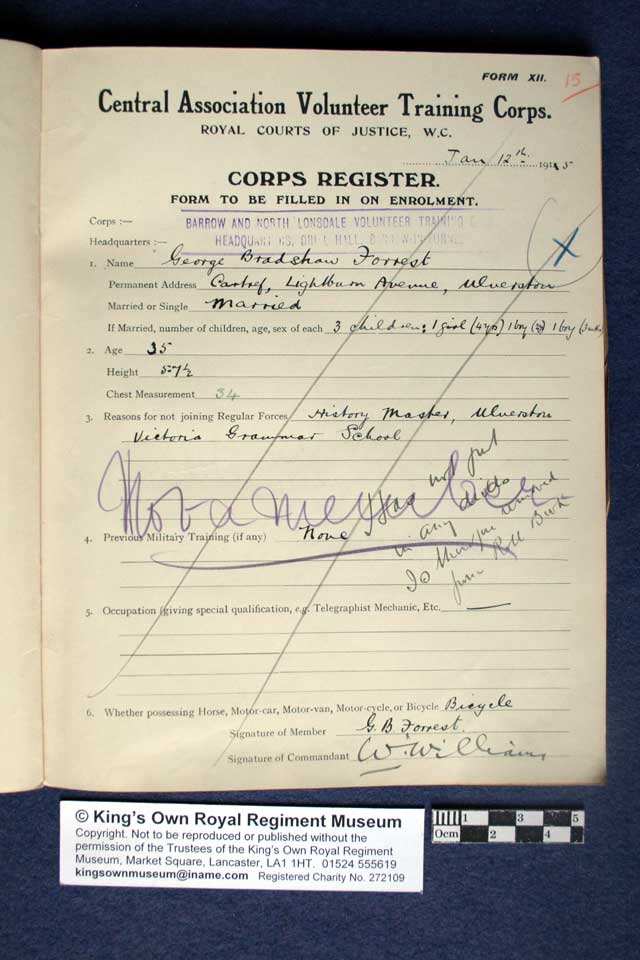 FORM XII. 15
Central Association Volunteer Training Corps.
ROYAL COURTS OF JUSTICE, W.C.
Jan 12th 1915
CORPS REGISTER.
FORM TO BE FILLED IN ON ENROLMENT.
Corps :— BARROW AND NORTH LONSDALE VOLUNTEER TRAINING
Headquarters :— HEADQUARTERS, DRILL HALL,
X
1. Name George Bradshaw Forrest
Permanent Address Cartref, Lightburn Avenue, Ulverston
Married or Single Married
If Married, number of children, age, sex of each 3 children: 1 girl (4 yrs) 1 boy 1 boy
2. Age 35
Height 5-7½
Chest Measurement 34
3. Reasons for not joining Regular Forces History Master, Ulverston
Victoria Grammar School
Not a member
Has not put
in any drills
Is therefore removed
from Roll Book
4. Previous Military Training (if any) None
5. Occupation (giving special qualification, e.g. Telegraphist Mechanic, Etc. —
6. Whether possessing Horse, Motor-car, Motor-van, Motor-cycle, or Bicycle Bicycle
Signature of Member G. B. Forrest.
Signature of Commandant W. Williams
© King's Own Royal Regiment Museum
Copyright. Not to be reproduced or published without the
permission of the Trustees of the King's Own Royal Regiment
Museum, Market Square, Lancaster, LA1 1HT. 01524 555619
kingsownmuseum@iname.com Registered Charity No. 272109
1 3 5
0cm 2 4